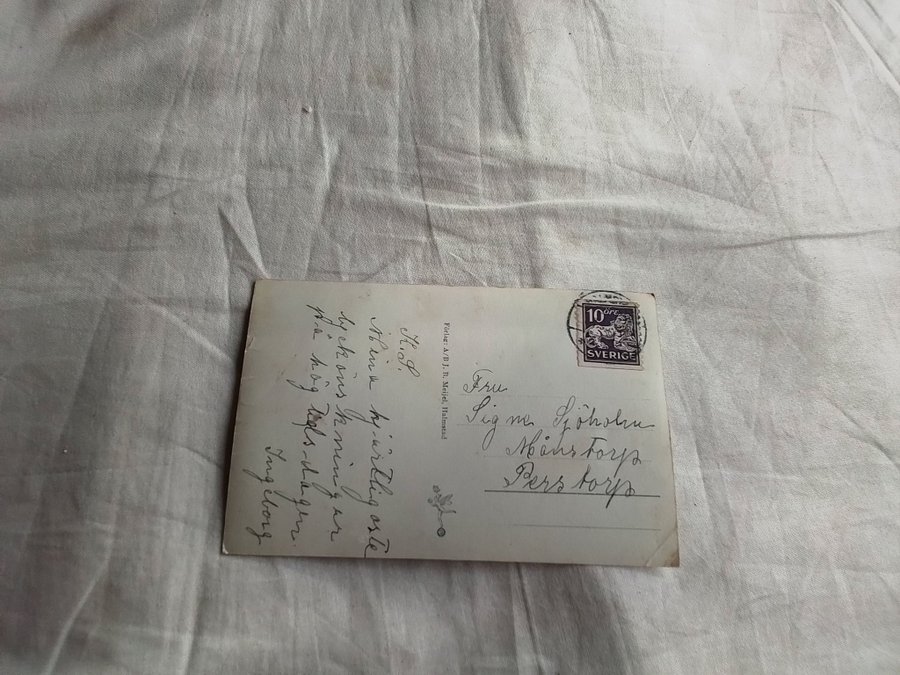 K. S.
Mina hjärtligaste
lyckönskningar
på högtids-dagen.
Ingeborg
Förlag: A/B J. R. Meijel, Halmstad
10 ÖRE
SVERIGE
Fru
Signe Sjöholm
Månstorp
Perstorp